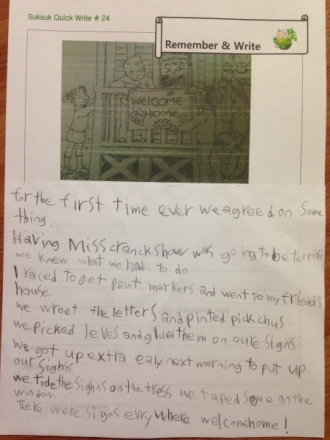 Suksuk Quick Write # 24
Remember & Write
WELCOME
HOME
for the first time ever we agreed on some
thing.
Having Miss cranckshow was going to be terrific
we knew what we had to do
I raced to get paint markers and went to my friends
house.
we wroet the letters and pinted pickchus
we picked leves and glued them on oure signs
we got up extra ealy next morning to put up
our signs
we tide the signs on the tress we taped some on the
window.
There were signs evry where welcome home!